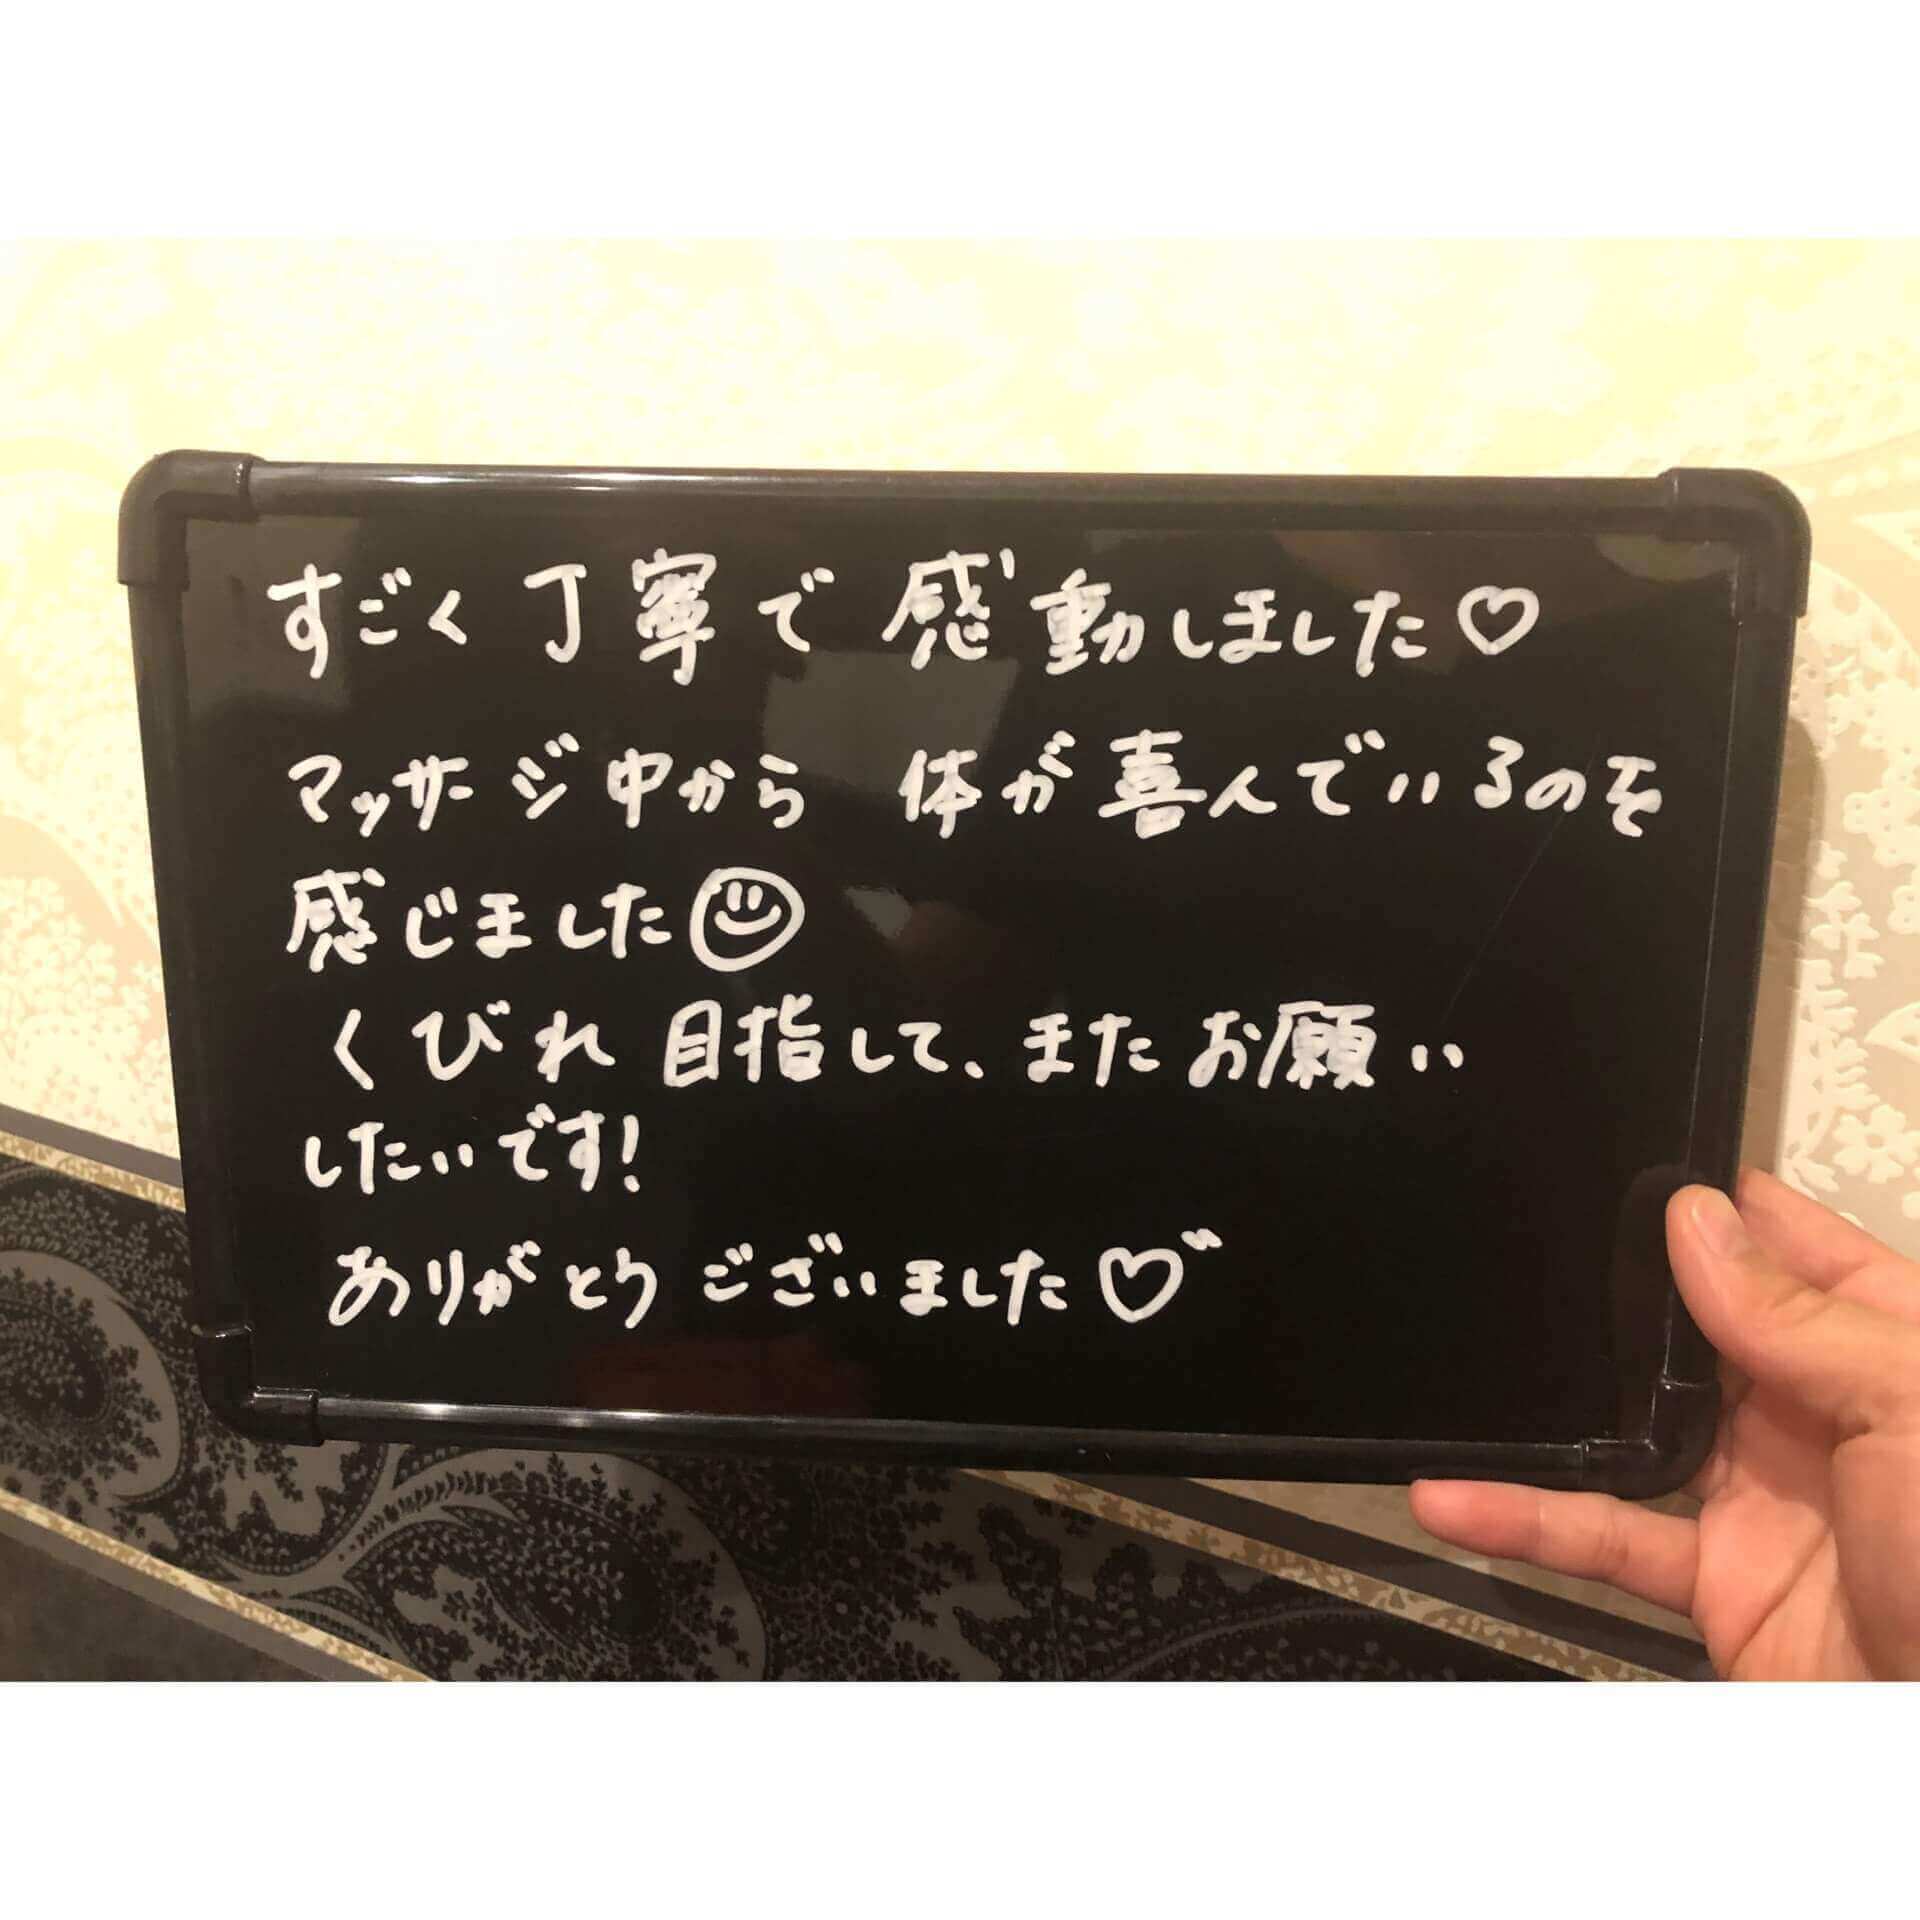 すごく丁寧で感動しました♡
マッサージ中から 体が喜んでいるのを
感じました☺
くびれ目指して、またお願い
したいです!
ありがとうございました♡゛